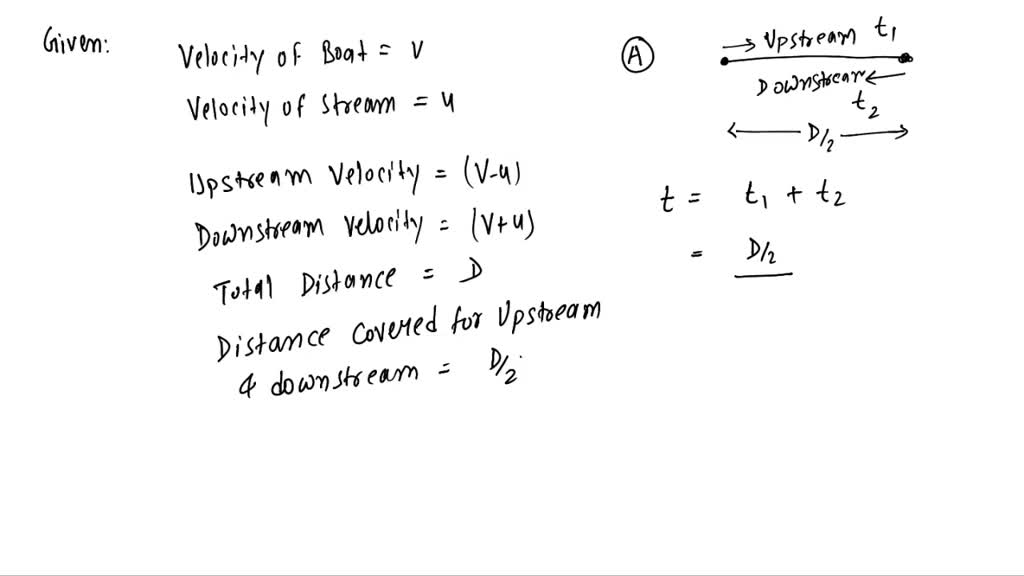 Given:
Velocity of Boat = V
Velocity of stream = u
Upstream Velocity = (V-u)
Downstream Velocity = (V+u)
Total Distance = D
Distance covered for Upstream
& downstream = D/2
A
→ Upstream t1
Downstream ←
t2
← D/2 →
t = t1 + t2
= D/2